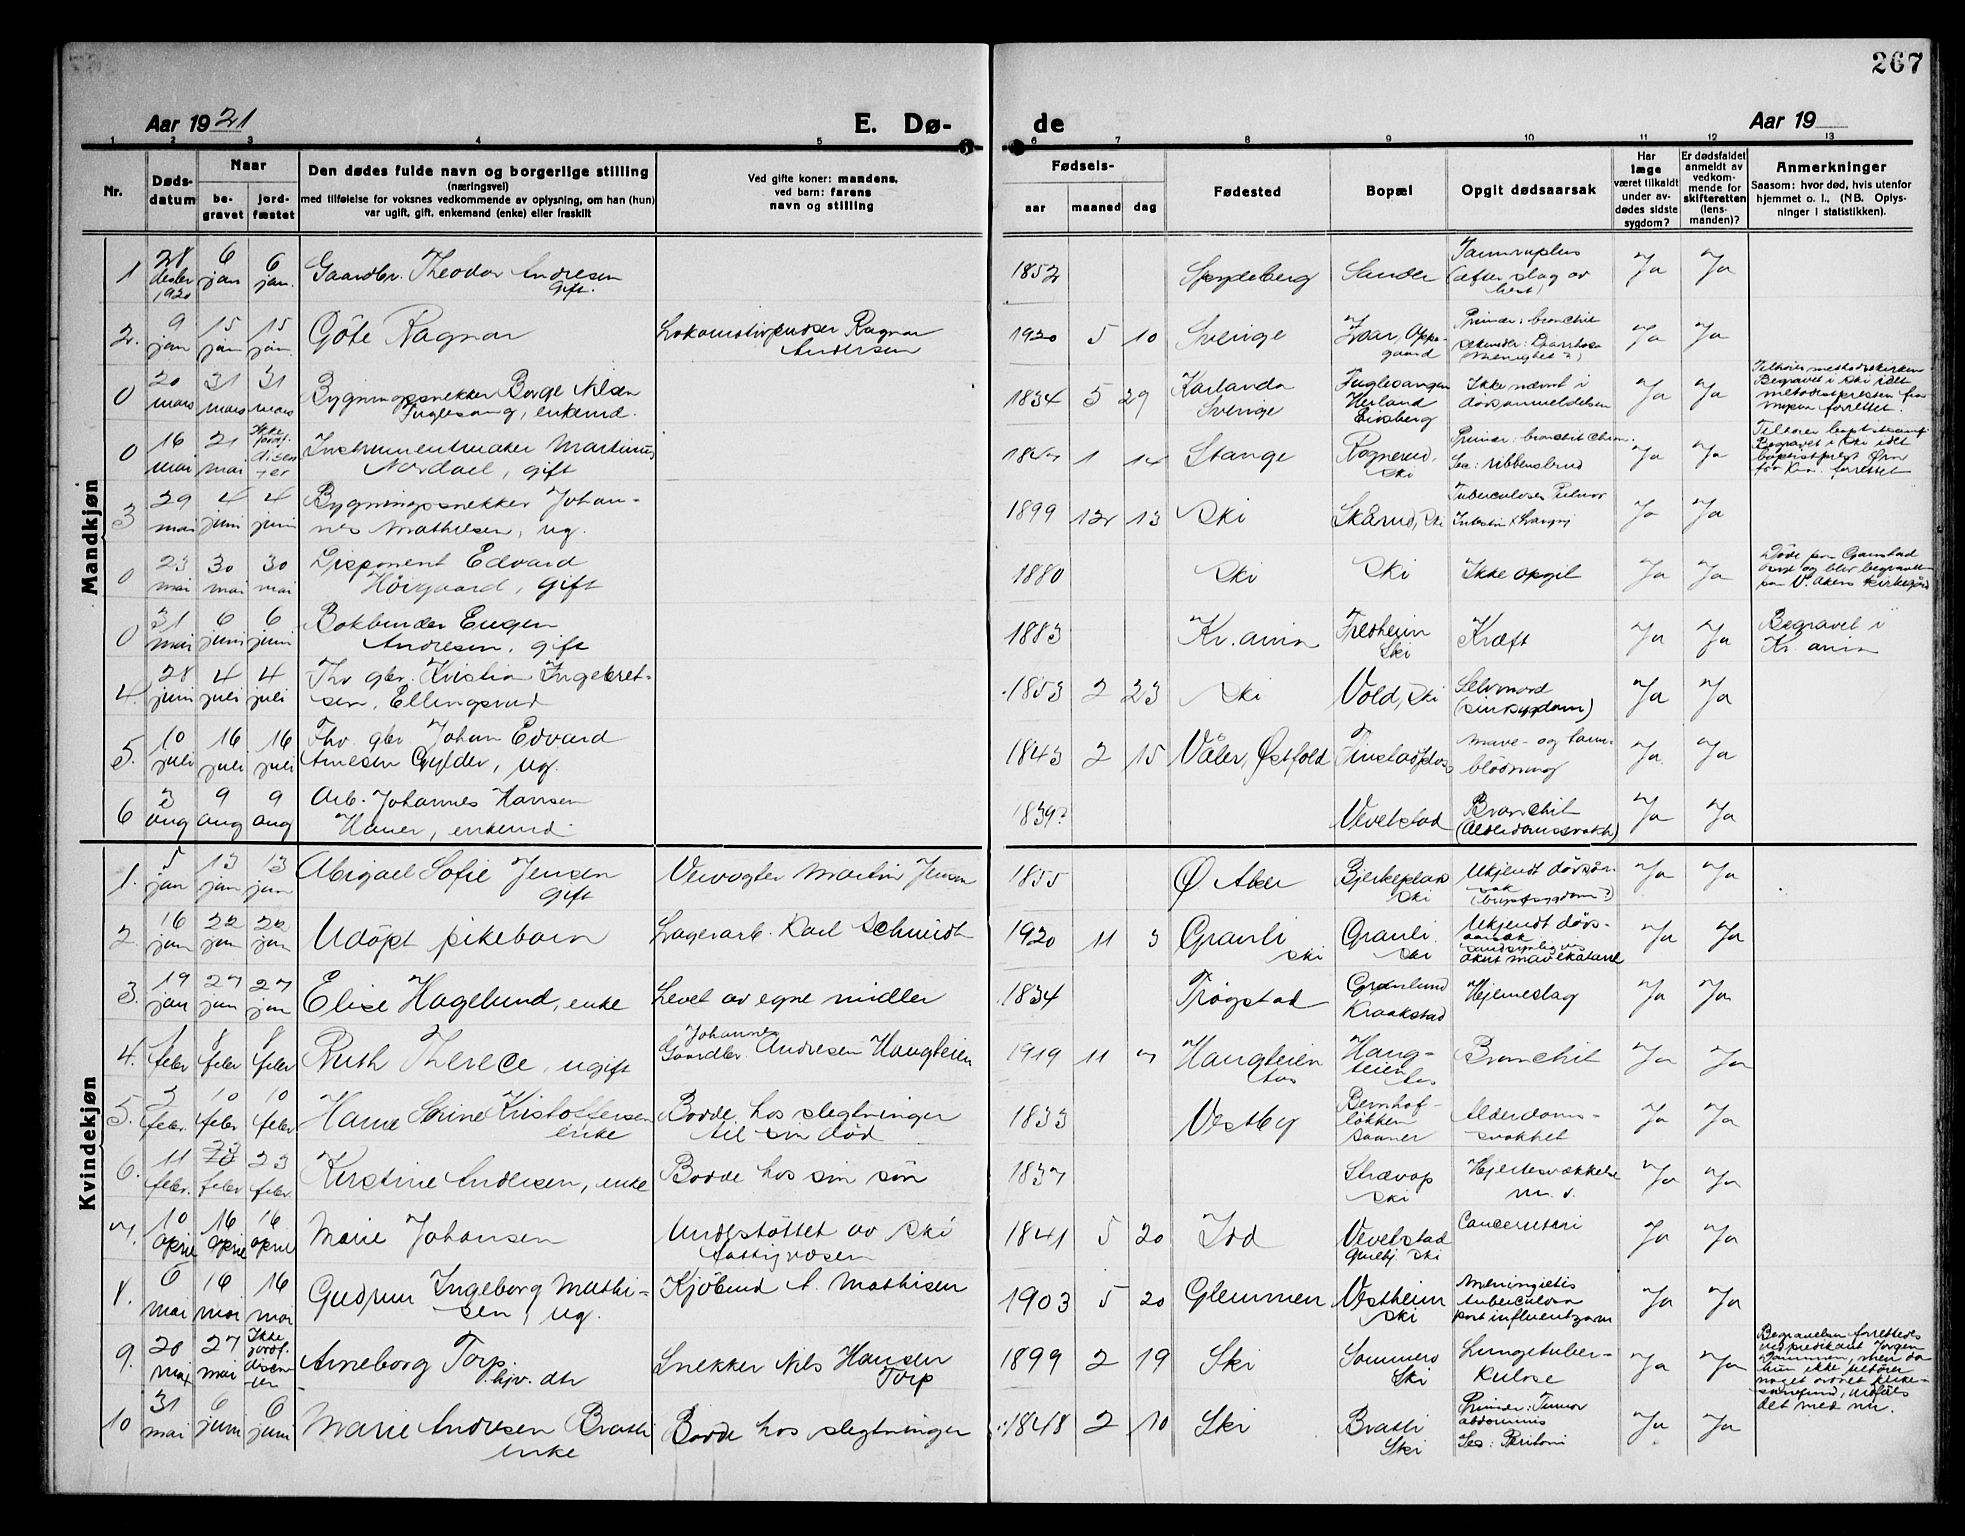 267
Aar 1921
E. Dø-
de
Aar 19
1 2 3 4 5 6 7 8 9 10 11 12 13
Nr.
Døds-
datum
Naar
be-
gravet
jord-
fæstet
Den dødes fulde navn og borgerlige stilling
(næringsvei)
med tilføielse for voksnes vedkommende av oplysning, om han (hun)
var ugift, gift, enkemand (enke) eller fraskilt
Ved gifte koner: mandens,
ved barn: farens
navn og stilling
Fødsels-
aar
maaned
dag
Fødested
Bopæl
Opgit dødsaarsak
Har
læge
været tilkaldt
under av-
dødes sidste
sygdom?
Er dødsfaldet
anmeldt av
vedkom-
mende for
skifteretten
(lens-
manden)?
Anmerkninger
Saasom: hvor død, hvis utenfor
hjemmet o. l., (NB. Oplys-
ninger i statistikken).
Mandkjøn
1 28 desbr 1920 6 jan 6 jan. Gaardbr. Theodor Andresen gift. 1852 Spydeberg Sander (efter slag av hest) Ja Ja
2. 9 jan 15 jan 15 jan. Göte Ragnar Lokomotivpudser Ragnar Andersen 1920 5 10 Sverige Oppe-gaard Primær: bronchit Ja Ja
0 20 mars 31 mars 31 mars Bygningssnekker Borge Nilsen Fuglesang, enkemd. 1834 5 29 Karlanda Sverige Fuglesangen Eidsberg Ikke nævnt i dödsanmeldelsen Ja Ja Tilhører methodistkirken Begravet i Ski idet methodistpresten fra forrettet.
0 16 mai 21 mai Ikke jordf. disen-ter Instrumentmaker Martinus Nordael, gift 1847 1 14 Stange Rognerud, Ski Primær: bronchit chron. Sec: ribbensbrud Ja Ja Begravet i Ski idet baptistprest forrettet
3 29 mai 4 juni 4 juni Bygningssnekker Johan-nes Mathisen, ug. 1899 12 13 Ski Skårud, Ski Ja Ja
0 23 mai 30 mai 30 mai Disponent Edvard Høigaard, gift 1880 Ski Ski Ikke opgit Ja Ja Döde paa Gaustad og blir begravet paa V. Akers kirkegård
0 31 mai 6 juni 6 juni Bokbinder Eugen Andresen, gift 1883 Kr.ania Fredheim Ski Kræft Ja Ja Begravet i Kr.ania
4. 28 juni 4 juli 4 juli Fhv gbr. Kristian Ingebret-sen, Ellingsrud 1853 2 23 Ski Vold, Ski Selvmord (sinsygdom) Ja Ja
5. 10 juli 16 juli 16 juli Fhv. gbr Johan Edvard Arnesen Gylder, ug. 1843 2 15 Våler, Østfold Finstadplads Mave- og tarm-blödning Ja Ja
6 3 aug 9 aug 9 aug Arb. Johannes Hansen Hauer, enkemd. 1839? Vevelstad Bronchit (Alderdomssvakh) Ja Ja
Kvindekjøn
1. 5 jan 13 jan 13 jan Abigael Sofie Jensen gift Veivogter Martin Jensen 1855 Ø. Aker Bjerkeplads Ski Ukjendt dödsår-sak (brystsygdom?) Ja Ja
2 16 jan 22 jan 22 jan Udöpt pikebarn Lagerarb. Karl Schmidt 1920 11 3 Granli Ski Granli Ski Ukjendt döds-aarsak sandsynligvis akut mavekatarrh Ja Ja
3. 19 jan 27 jan 27 jan Elise Hagelund, enke Levet av egne midler 1834 Trögstad Grönlund Kraakstad Hjerneslag Ja Ja
4. 1 febr 8 febr 8 febr Ruth Therece, ugift Gaardbr. Johannes Andresen Haugteien 1919 11 7 Haugteien Aas Haug-teien Aas Bronchit Ja Ja
5. 3 febr. 10 febr 10 febr Hanne Sörine Kristoffersen enke Bodde hos slegtninger til sin död 1833 Vestby løkken Saaner Alderdoms-svakhet Ja Ja
6. 11 febr. 23 febr 23 febr Kirstine Andresen, enke Bodde hos sin sön 1837 Ski Hjertesvækkelse m. v. Ja Ja
7. 10 april 16 april 16. april Marie Johansen Understöttet av Ski fattigvæsen 1841 5 20 Idd Vevelstad Ski Cancer uteri Ja Ja
8. 6 mai 16 mai 16 mai Gudrun Ingeborg Mathi-sen, ug. Kjöbmd A. Mathisen 1903 5 20 Glemmen Vestheim Ski Meningitis tuberculosa post influentzam Ja Ja
9. 20 mai 27 mai Ikke jordf. disen-ter Arneborg Torp. hjv. dtr Snekker Nils Hansen Torp 1899 2 19 Ski Sommero Ski Lungetuber-kulose Ja Ja Begravelsen forrettedes ved predikant Jörgen men da hun ikke tilhörer noget ordnet kirke-samfund, utföres det med nr.
10 31 mai 6 juni 6 juni Marie Andresen Bratli enke Bodde hos slegtninger 1848 2 10 Ski Bratli Ski Primær: Tumor abdominis Sec: Peritoni Ja Ja